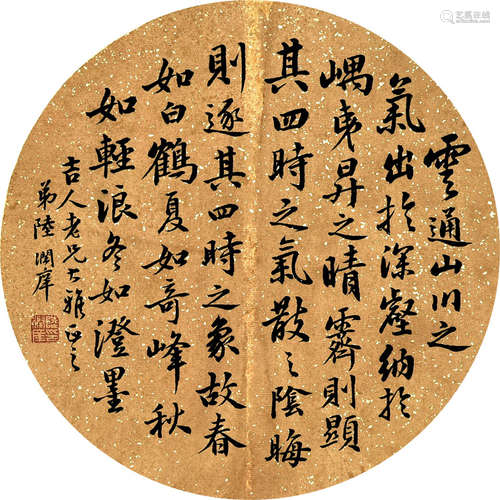 雲通山川之
氣出於深壑納於
嵎夷昇之晴霽則顯
其四時之氣散之陰晦
則逐其四時之象故春
如白鶴夏如奇峰秋
如輕浪冬如澄墨
吉人老兄大雅正之
弟陸潤庠